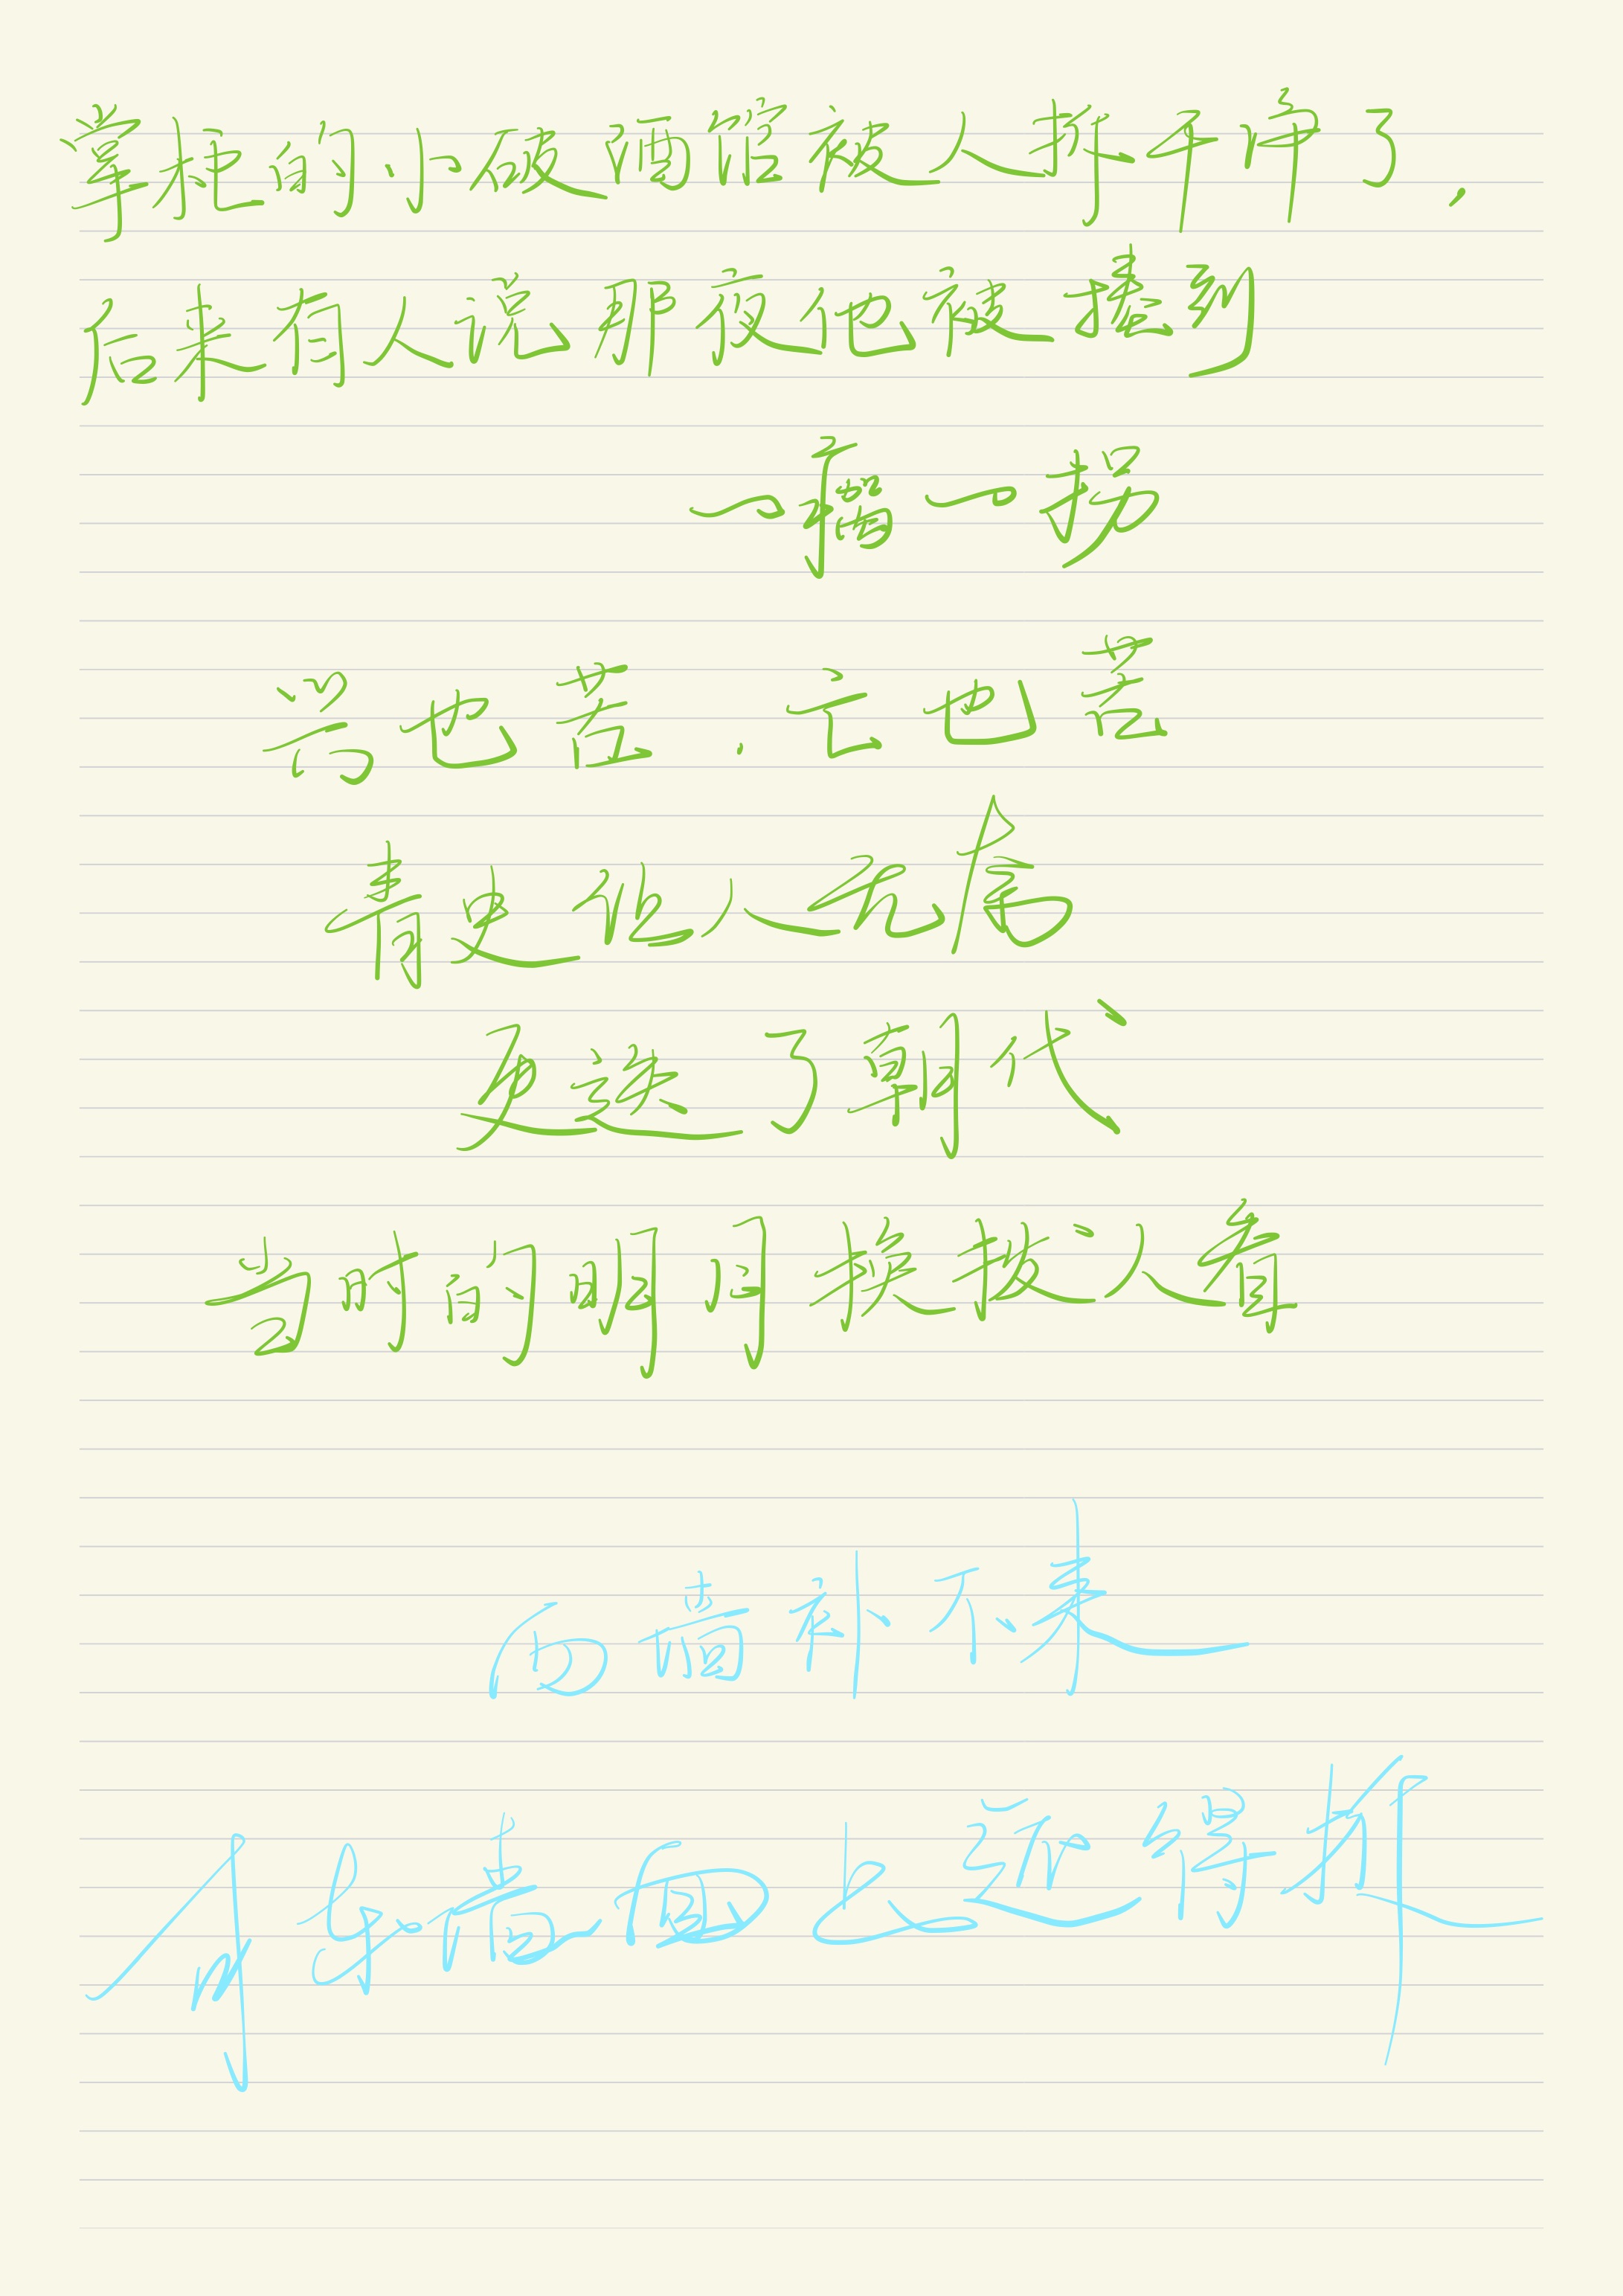 掌柜的小破酒馆被人拆干净了，
后来有人说那夜他被撞到
一瘸一拐
兴也苦，亡也苦
青史让人无奈
更迭了朝代
当时的明月换拨人看
西墙补不来
可东墙面上还得拆